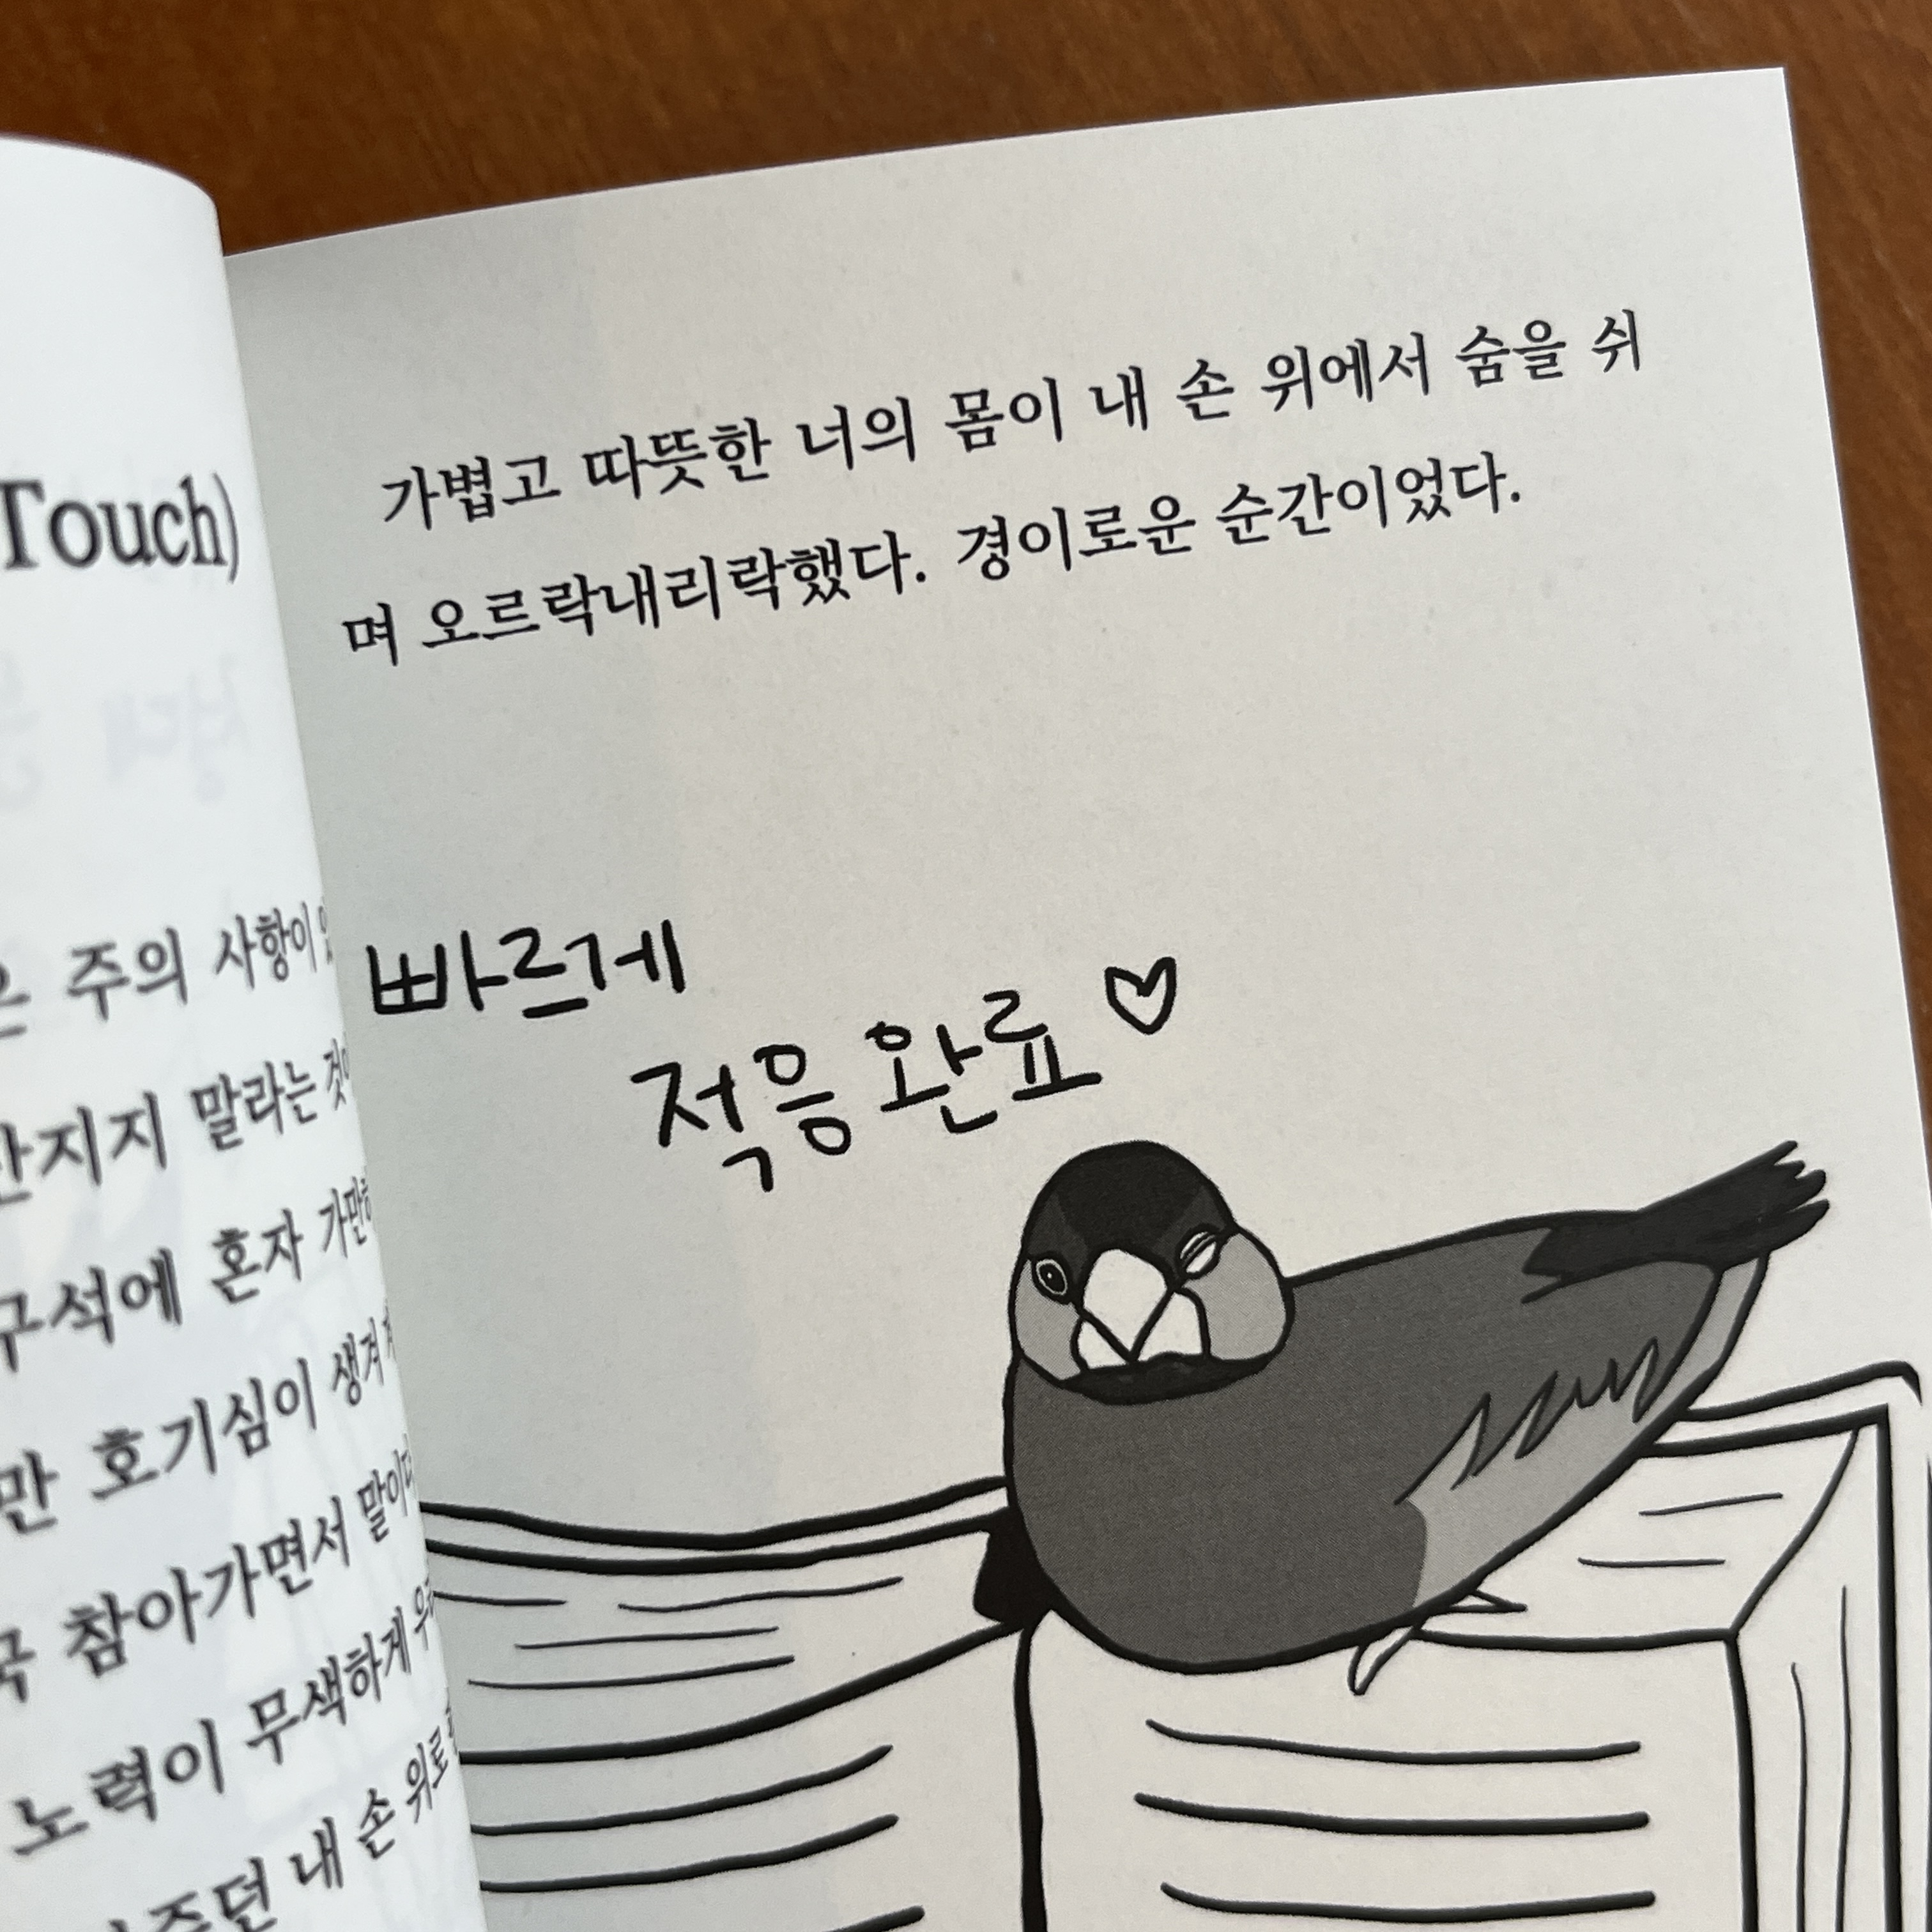 Touch)
주의 사항이
지지 말라는
구석에 혼자
만 호기심이 생겨
참아가면서 말이다
노력이 무색하게
주던 내 손 위로
가볍고 따뜻한 너의 몸이 내 손 위에서 숨을 쉬
며 오르락내리락했다. 경이로운 순간이었다.
빠르게
적응 완료♡